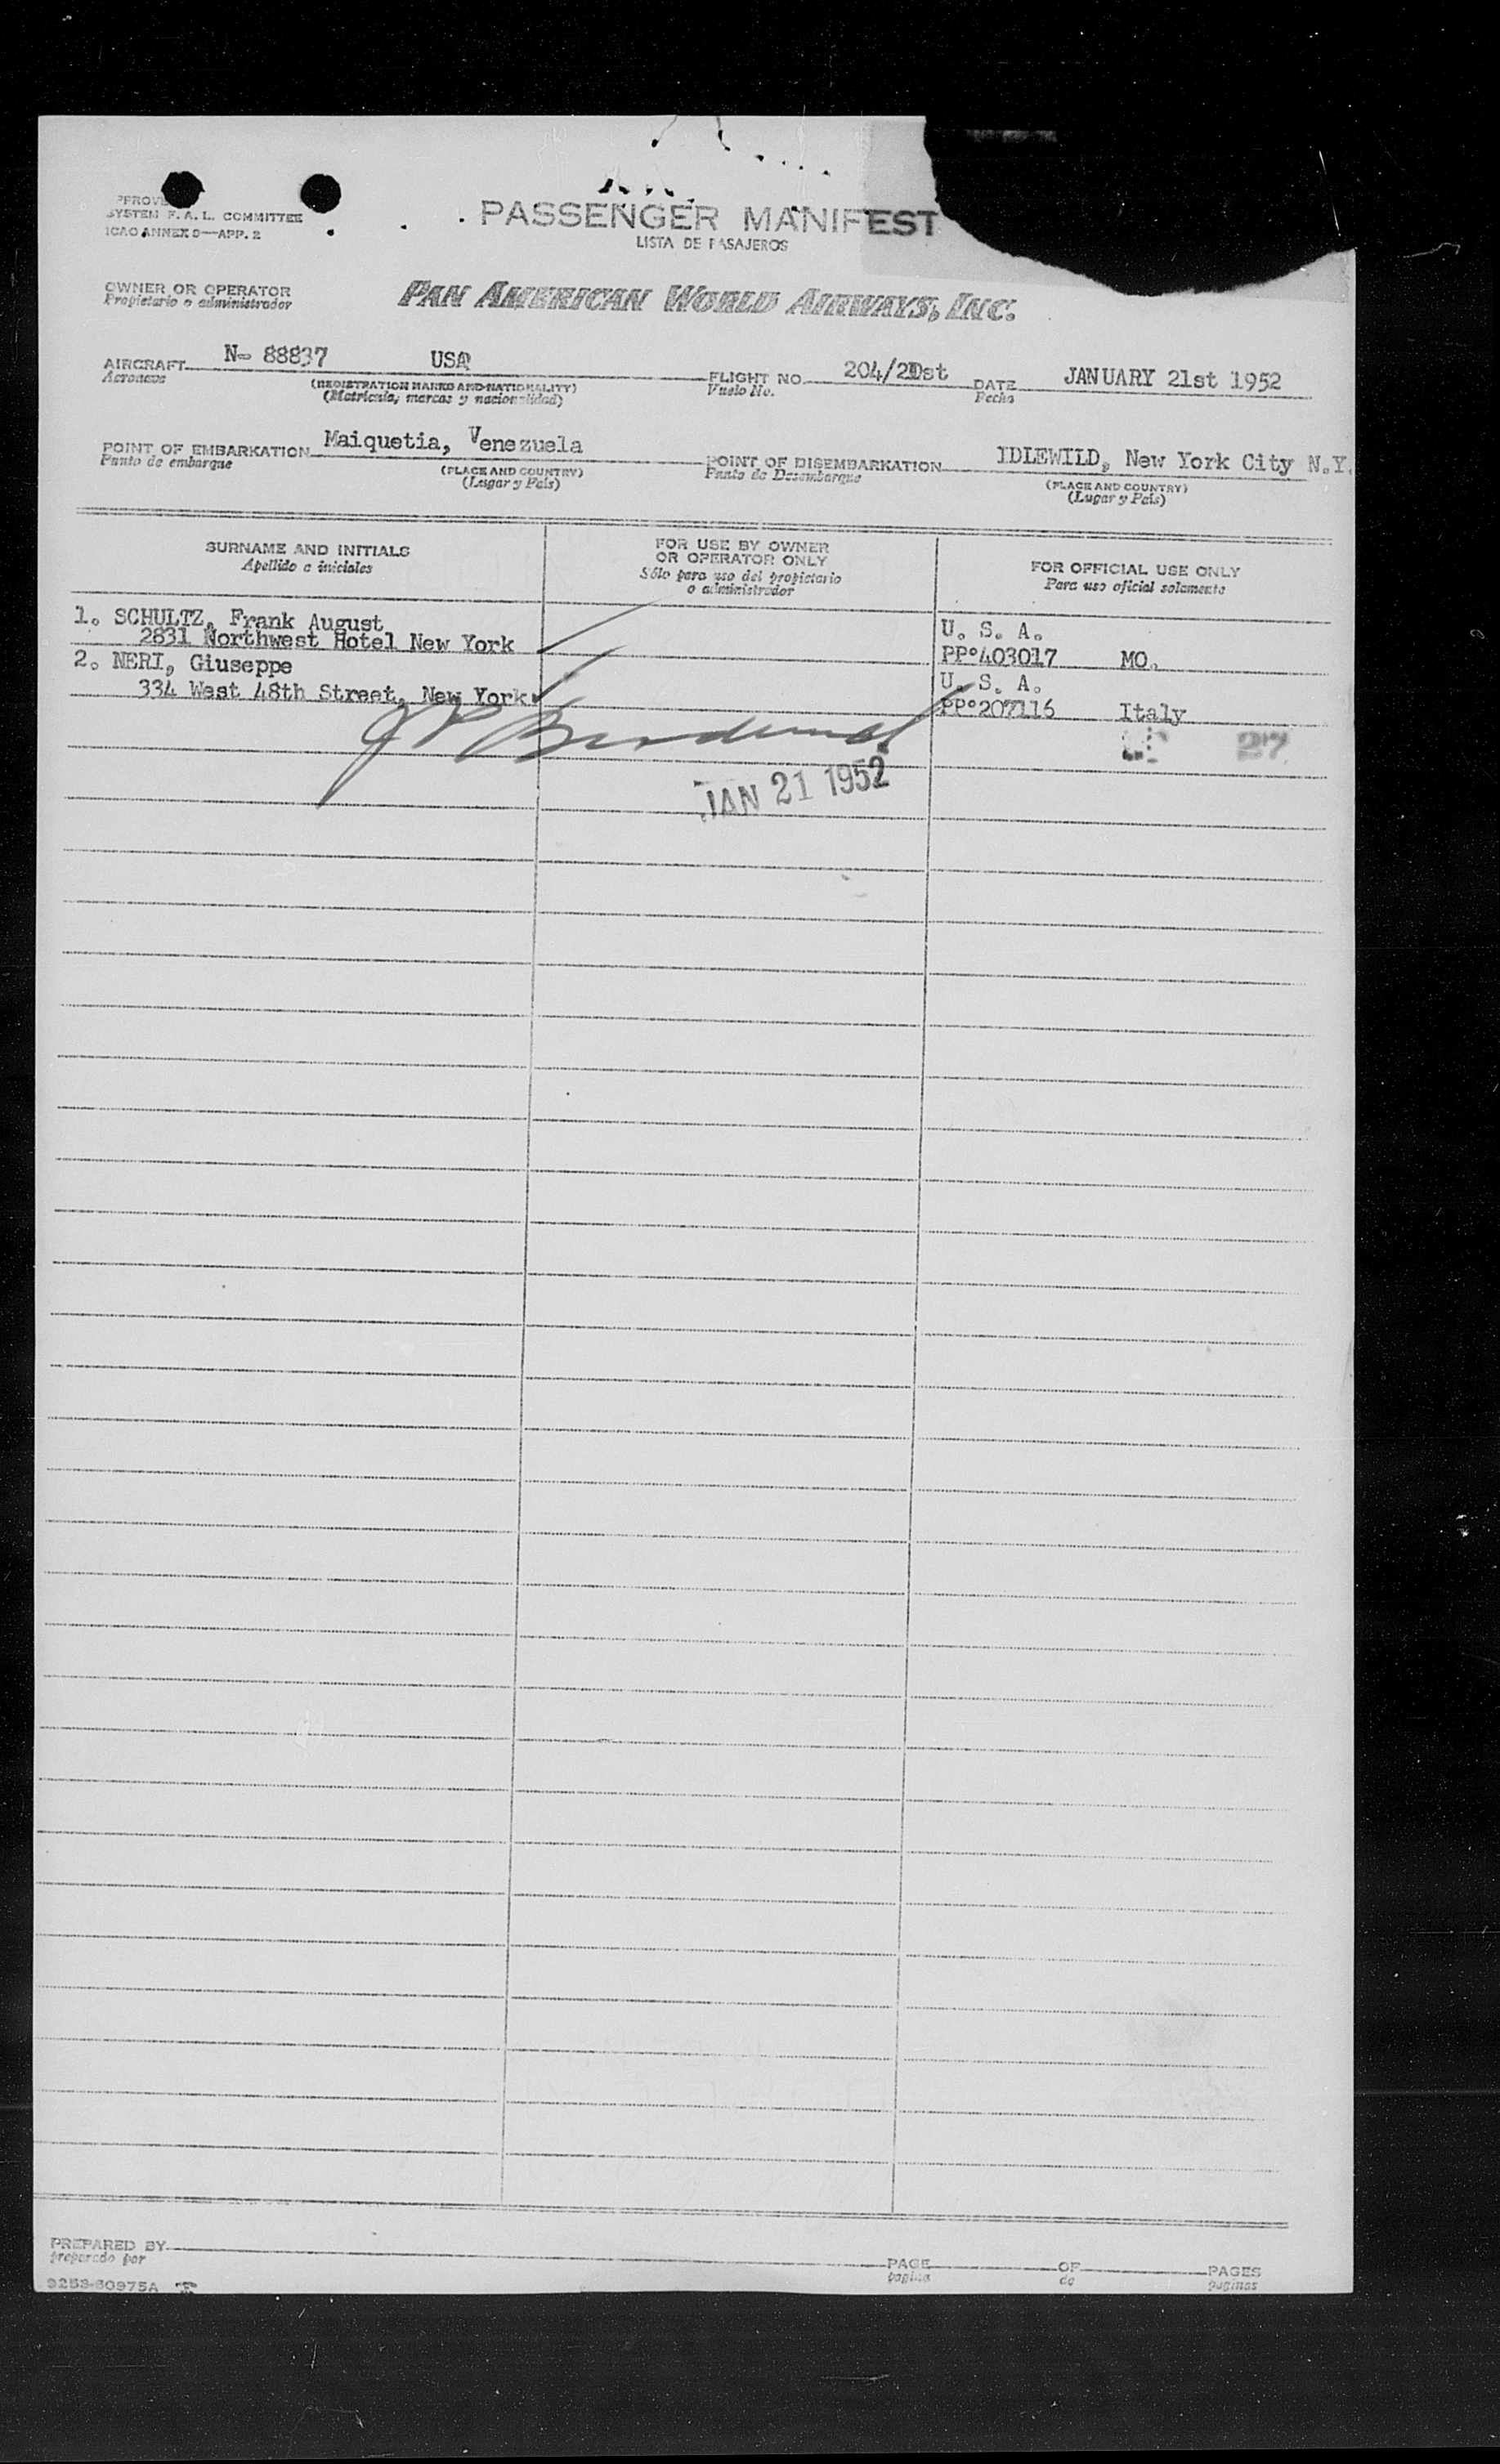 PASSENGER MANIFEST
SYSTEM F. A. L. COMMITTEE
ICAO ANNEX 9—APP. 2
LISTA DE PASAJEROS
OWNER OR OPERATOR
Propietario o administrador
PAN AMERICAN WORLD AIRWAYS, INC.
AIRCRAFT N- 88837 USA FLIGHT NO. 204/ DATE JANUARY 21st 1952
Aeronave (REGISTRATION MARKS AND NATIONALITY) Vuelo No. Fecha
(Matricula, marcas y nacionalidad)
POINT OF EMBARKATION Maiquetia, Venezuela POINT OF DISEMBARKATION IDLEWILD, New York City N.Y.
Punto de embarque (PLACE AND COUNTRY) Punto de Desembarque (PLACE AND COUNTRY)
(Lugar y Pais) (Lugar y Pais)
SURNAME AND INITIALS
Apellido e iniciales
FOR USE BY OWNER
OR OPERATOR ONLY
Sólo para uso del propietario
o administrador
FOR OFFICIAL USE ONLY
Para uso oficial solamente
1. SCHULTZ, Frank August U. S. A.
2831 Northwest Hotel New York PPº403017 MO.
2. NERI, Giuseppe U. S. A.
334 West 48th Street, New York PPº207116 Italy
27
JAN 21 1952
PREPARED BY PAGE OF PAGES
preparado por pagina de paginas
9253-60975A